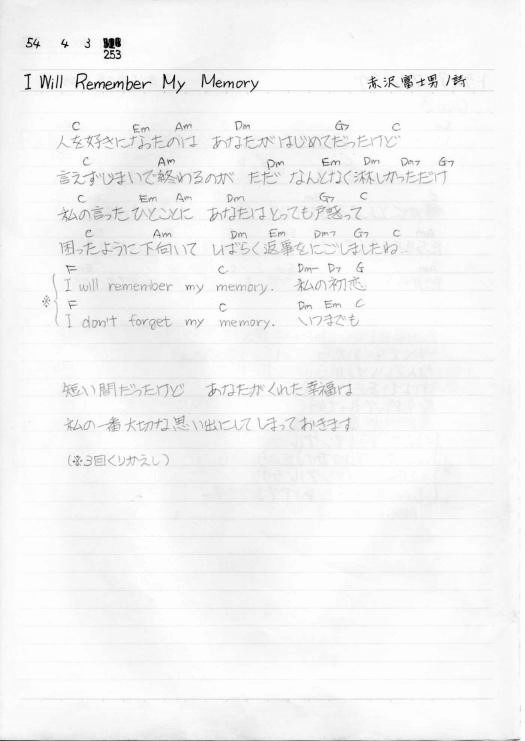 54 4 3
253
I Will Remember My Memory 赤沢富士男/詩
C Em Am Dm G7 C
人を好きになったのは あなたがはじめてだったけど
C Am Dm Em Dm Dm7 G7
言えずじまいで終わるのが ただ なんとなく淋しかっただけ
C Em Am Dm G7 C
私の言ったひとことに あなたはとっても戸惑って
C Am Dm Em Dm7 G7 C
困ったように下向いて しばらく返事をにごしましたね…
F C Dm D7 G
※ I will remember my memory. 私の初恋
F C Dm Em C
I don't forget my memory. いつまでも
短い間だったけど あなたがくれた幸福は
私の一番大切な思い出にしてしまっておきます
(※3回くりかえし)